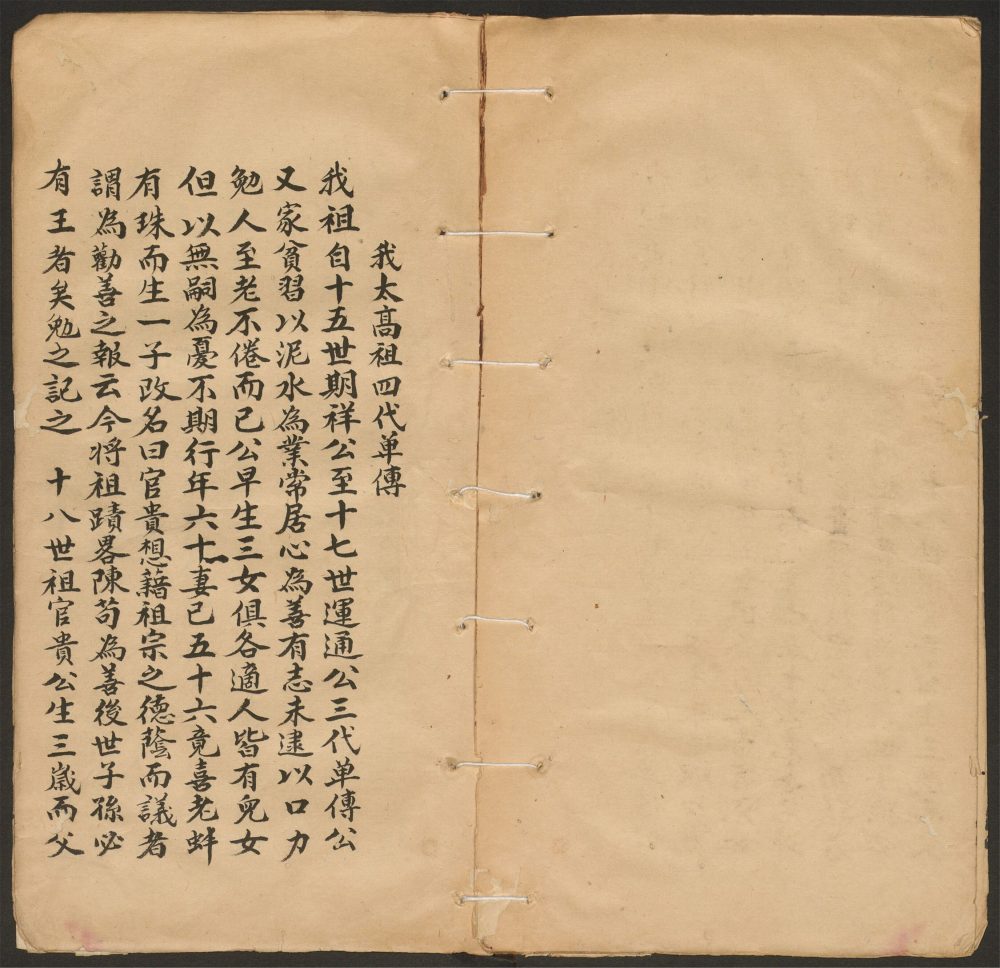 我太高祖四代单傳
我祖自十五世期祥公至十七世運通公三代单傳公
又家貧習以泥水為業常居心為善有志未逮以口力
勉人至老不倦而已公早生三女俱各適人皆有兒女
但以無嗣為憂不期行年六十妻已五十六竟喜老蚌
有珠而生一子改名曰官貴想藉祖宗之德蔭而議者
謂為勸善之報云今将祖蹟畧陳苟為善後世子孫必
有王者矣勉之記之 十八世祖官貴公生三歲而父